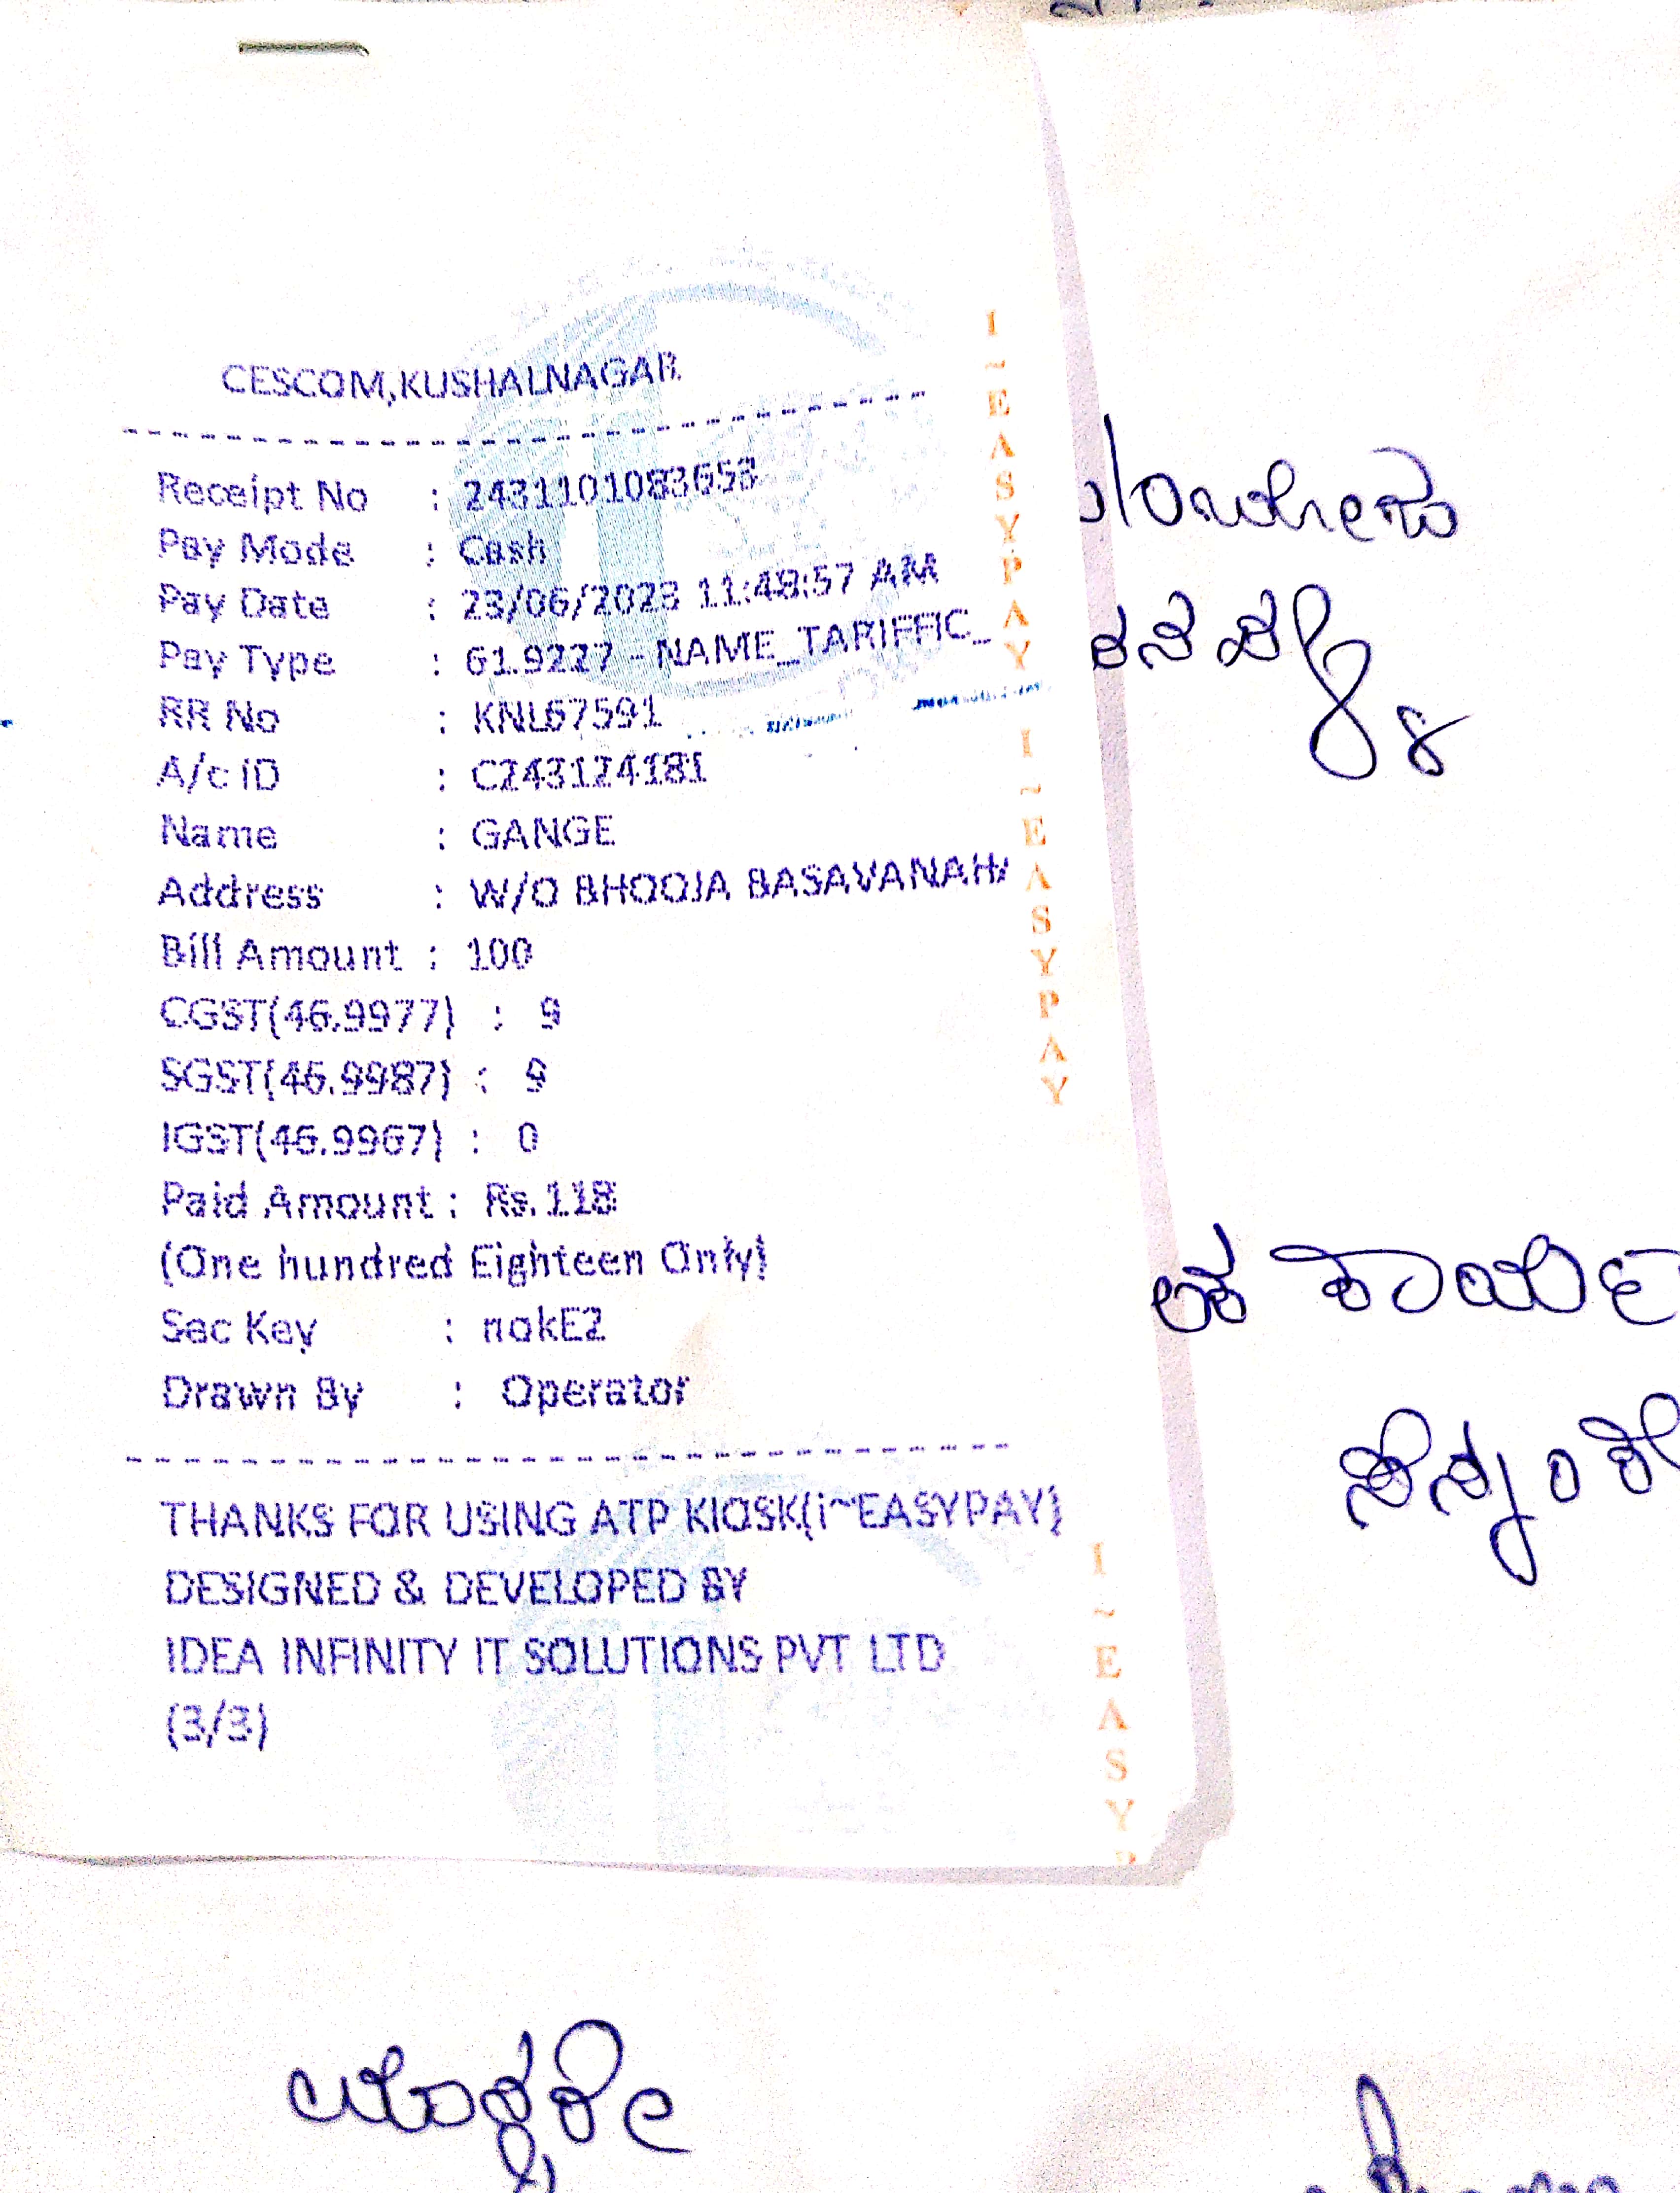 CESCOM,KUSHALNAGAR
Receipt No : 2431101083653
Pay Mode : Cash
Pay Date : 23/06/2023 11:48:57 AM
Pay Type : 61.9227 - NAME_TARIFFIC_
RR No : KNL67591
A/c ID : C243124181
Name : GANGE
Address : W/O BHOOJA BASAVANAHA
Bill Amount : 100
CGST(46.9977) : 9
SGST(46.9987) : 9
IGST(46.9967) : 0
Paid Amount : Rs.118
(One hundred Eighteen Only)
Sec Key : nokEZ
Drawn By : Operator
THANKS FOR USING ATP KIOSK(i~EASYPAY)
DESIGNED & DEVELOPED BY
IDEA INFINITY IT SOLUTIONS PVT LTD
(3/3)
I~EASYPAY
I~EASYPAY
I~EASYP